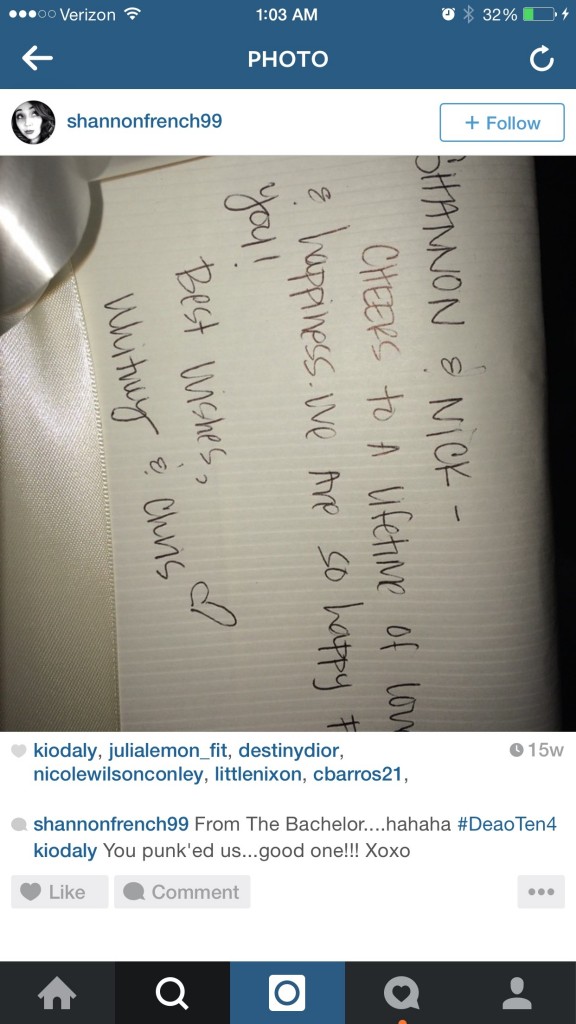 Verizon 1:03 AM 32%
PHOTO
shannonfrench99
+ Follow
SHANNON & NICK -
CHEERS to A lifetime of lov
& happiness. We Are so happy f
you!
Best Wishes,
Whitney & Chris
kiodaly, julialemon_fit, destinydior,
15w
nicolewilsonconley, littlenixon, cbarros21,
shannonfrench99 From The Bachelor....hahaha #DeaoTen4
kiodaly You punk'ed us...good one!!! Xoxo
Like
Comment